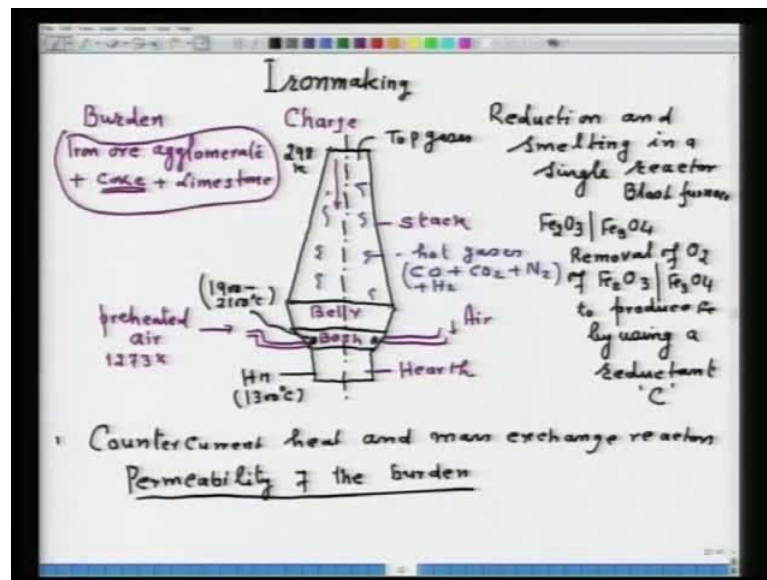 Ironmaking
Burden
Iron ore agglomerate
+ Coke + Limestone
Charge
298
K
Top gases
stack
hot gases
(CO + CO2 + N2)
+ H2
(1900-
2100°C)
Belly
preheated
air
1273 K
Bosh
Air
Hearth
HM
(1300°C)
Reduction and
smelting in a
single reactor
Blast furnace
Fe2O3 | Fe3O4
Removal of O2
of Fe2O3 | Fe3O4
to produce Fe
by using a
reductant
'C'
Countercurrent heat and mass exchange reactor
Permeability of the burden